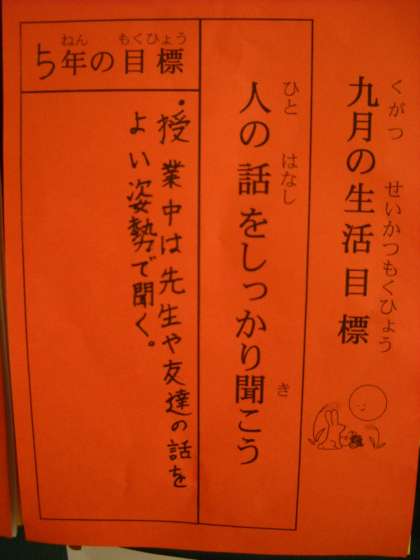 九月の生活目標
くがつ せいかつもくひょう
人の話をしっかり聞こう
ひと はなし き
5年の目標
ねん もくひょう
・授業中は先生や友達の話を
よい姿勢で聞く。